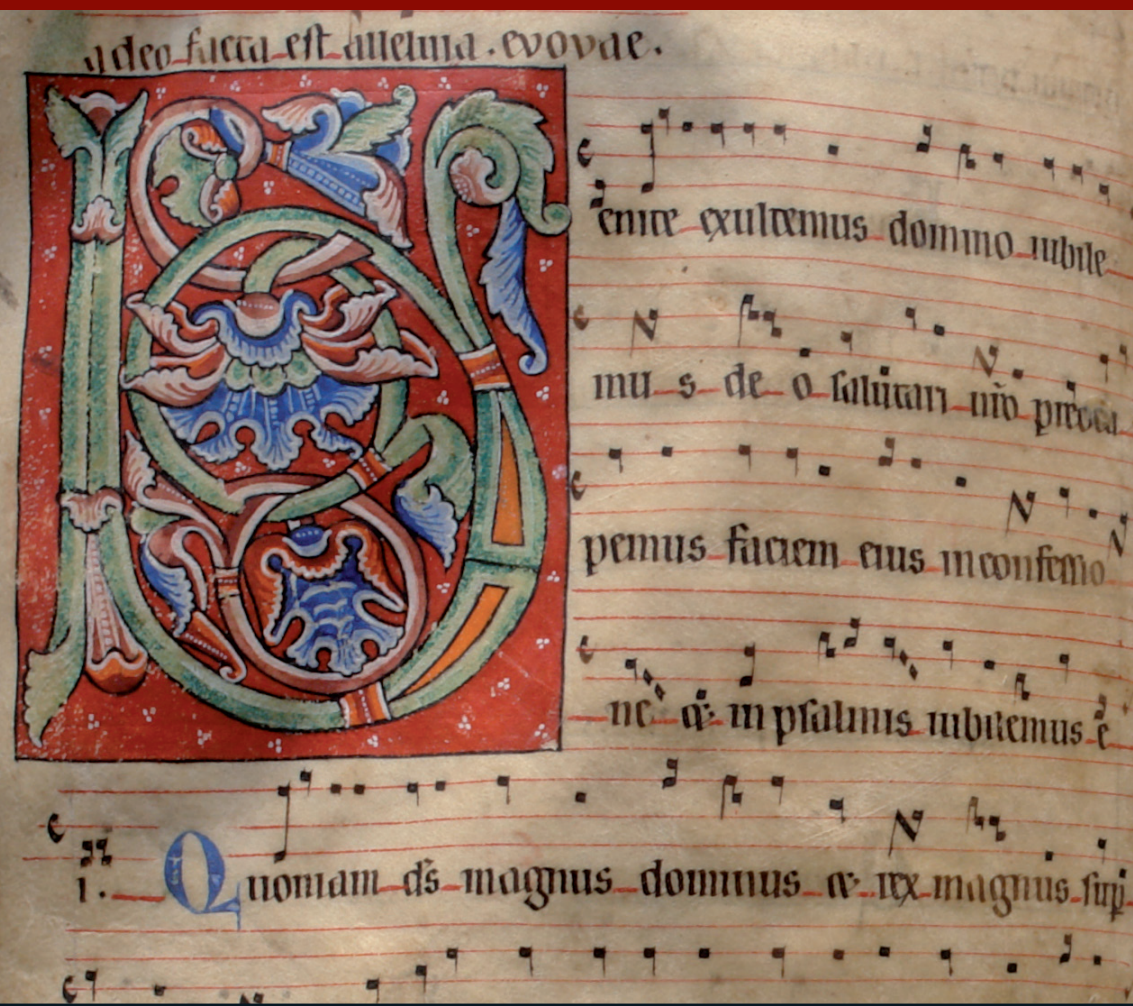 adeo facta est alleluia. evovae.
Venite exultemus domino iubile
mus deo salutari nr̄o preocu
pemus faciem eius in confessio
ne & in psalmis iubilemus e
i. Quoniam ds̄ magnus dominus & rex magnus sup̄